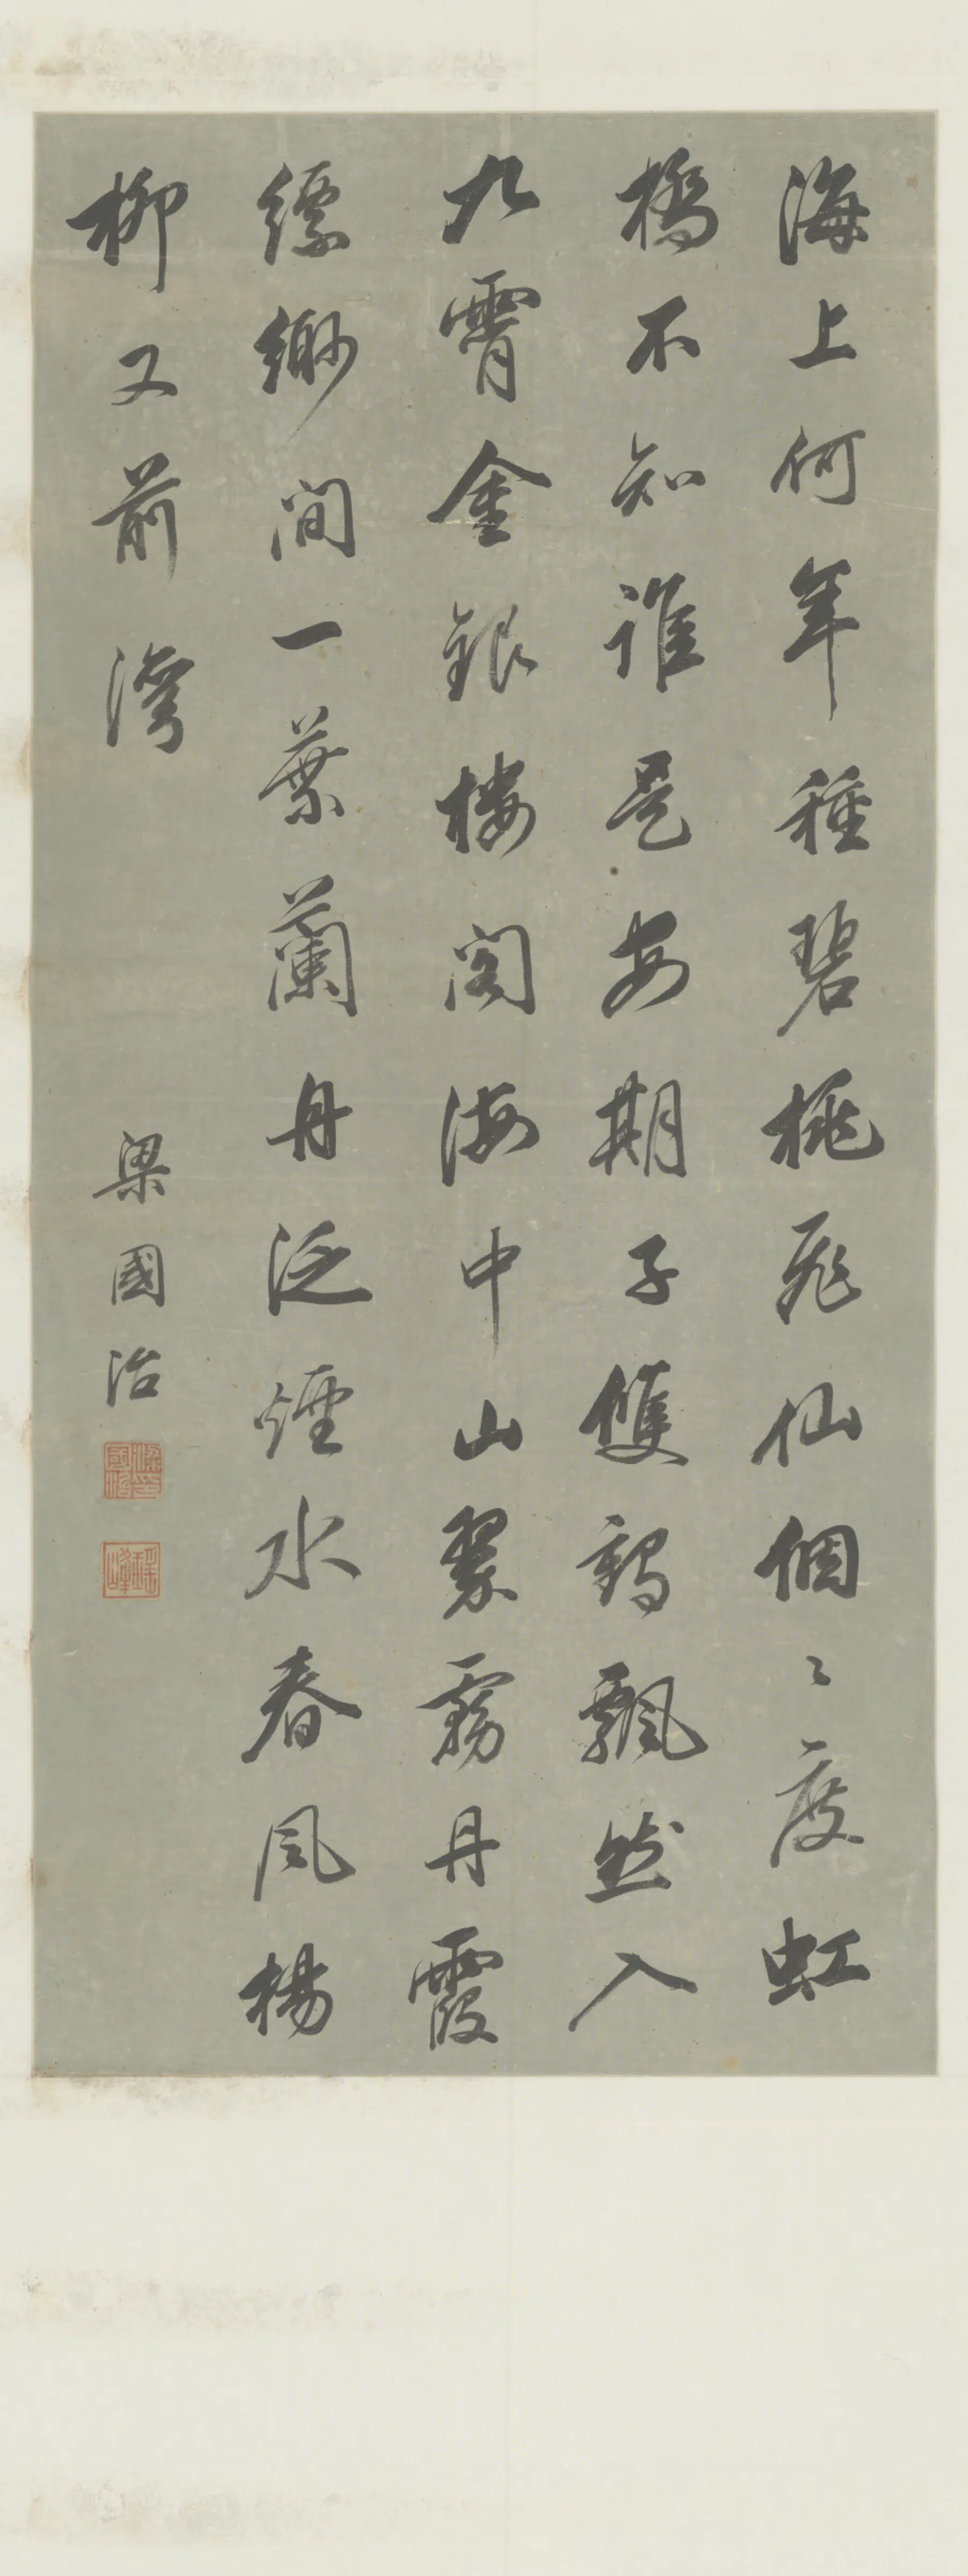 海上何年種碧桃飛仙個〻度虹
橋不知誰是安期子雙鶴飄然入
九霄金銀樓閣海中山翠霧丹霞
縹緲間一葉蘭舟泛煙水春風楊
柳又前灣
梁國治
梁國治印
瑤峰